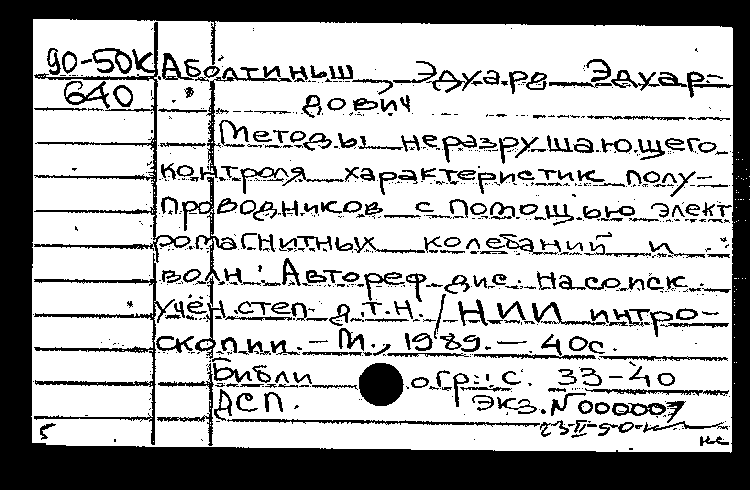 90-50К Аболтиньш, Эдуард Эдуар-
640 дович
Методы неразрушающего
контроля характеристик полу-
проводников с помощью элект
ромагнитных колебаний и
волн: Автореф. дис. на соиск.
учен. степ. д.т.н. / НИИ интро-
скопии. — М., 1989. — 40с.
Библиогр.: с. 33-40
ДСП. Экз. N 000007
23 II 90
5 нс